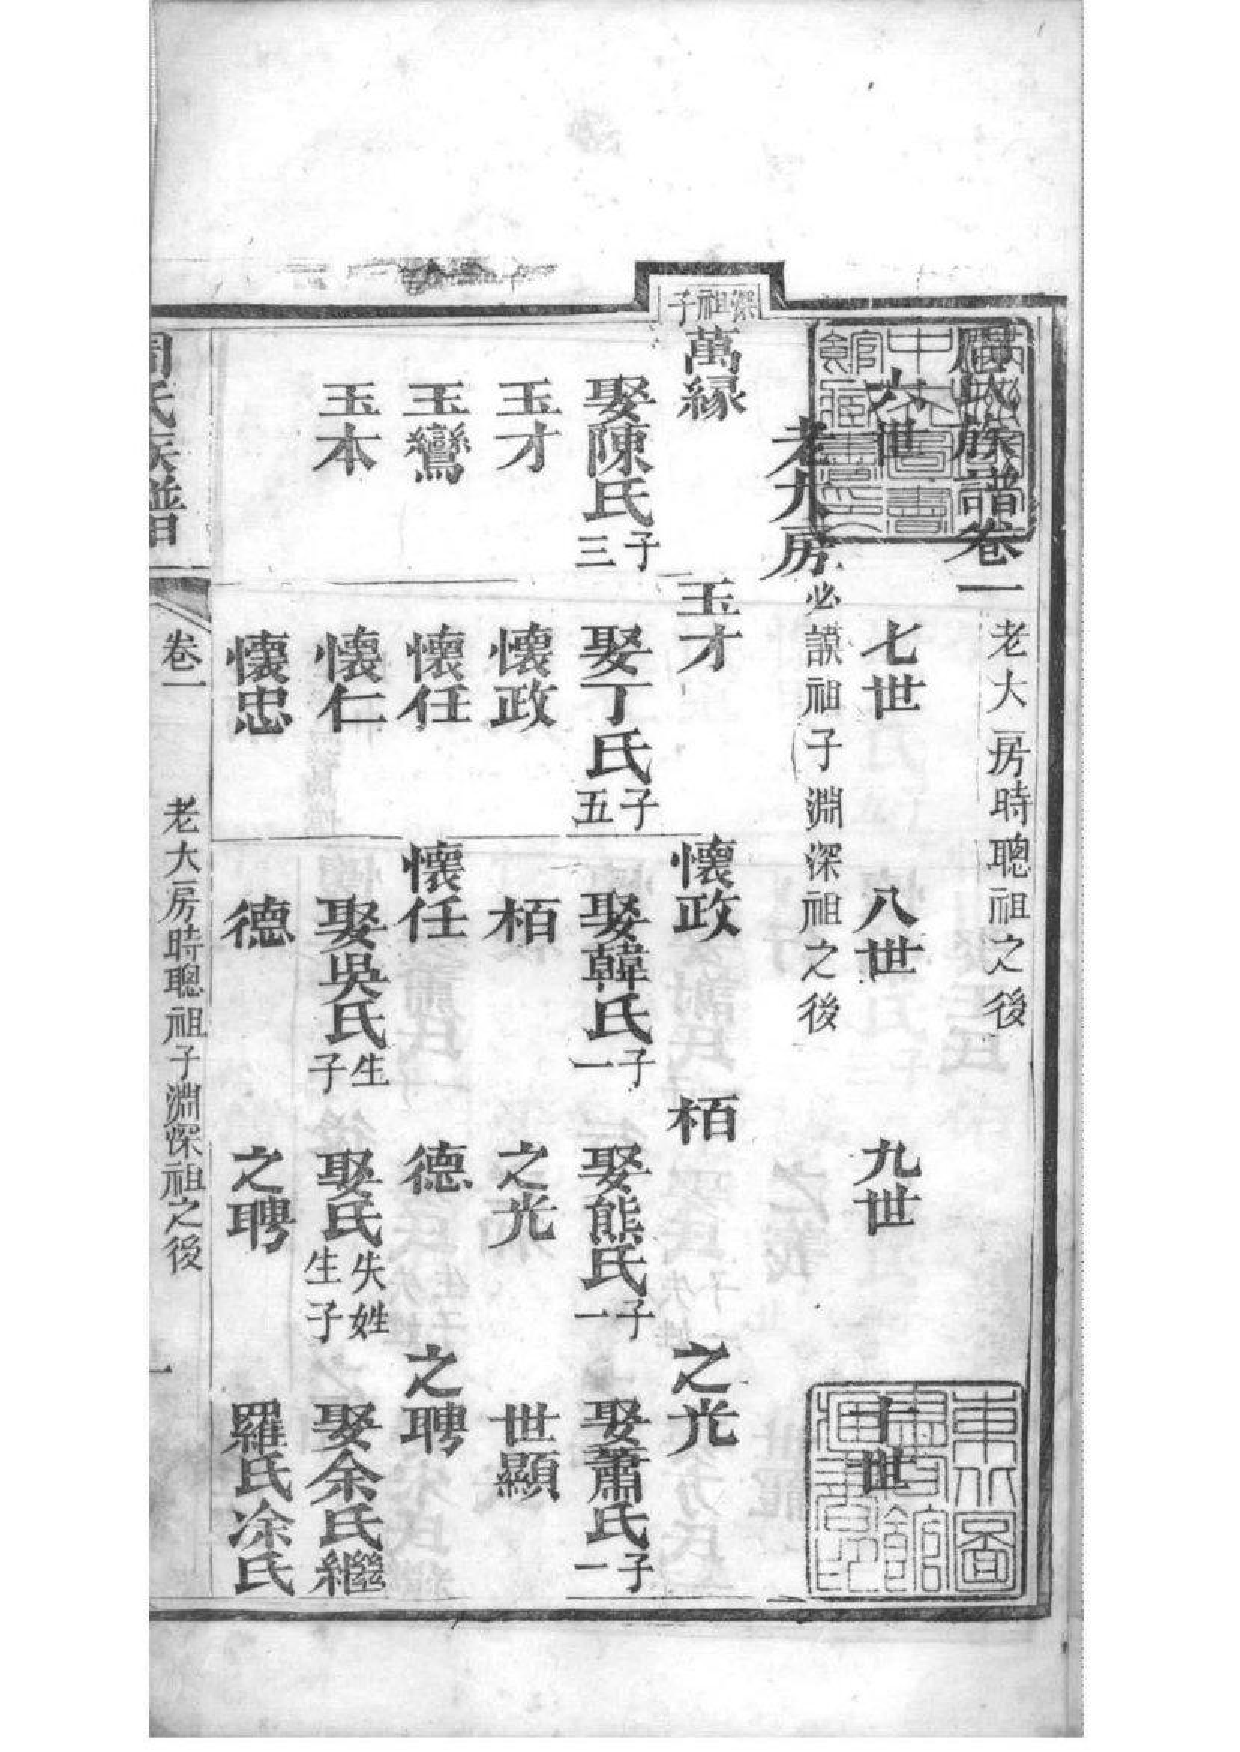 周氏族譜卷一 老大房時聰祖之後
六世 七世 八世 九世 十世
老大房 必謨祖子淵深祖之後
深祖子
萬縁 玉才 懷政 栢 之光
娶陳氏三子 娶丁氏五子 娶韓氏一子 娶熊氏一子 娶蕭氏一子
玉才 懷政 栢 之光 世顯
玉鸞 懷任 懷任 德 之聘
玉本 懷仁 娶吳氏生子 娶氏失姓生子 娶余氏繼
懷忠 德 之聘 羅氏凃氏
周氏族譜 卷一 老大房時聰祖子淵深祖之後 一